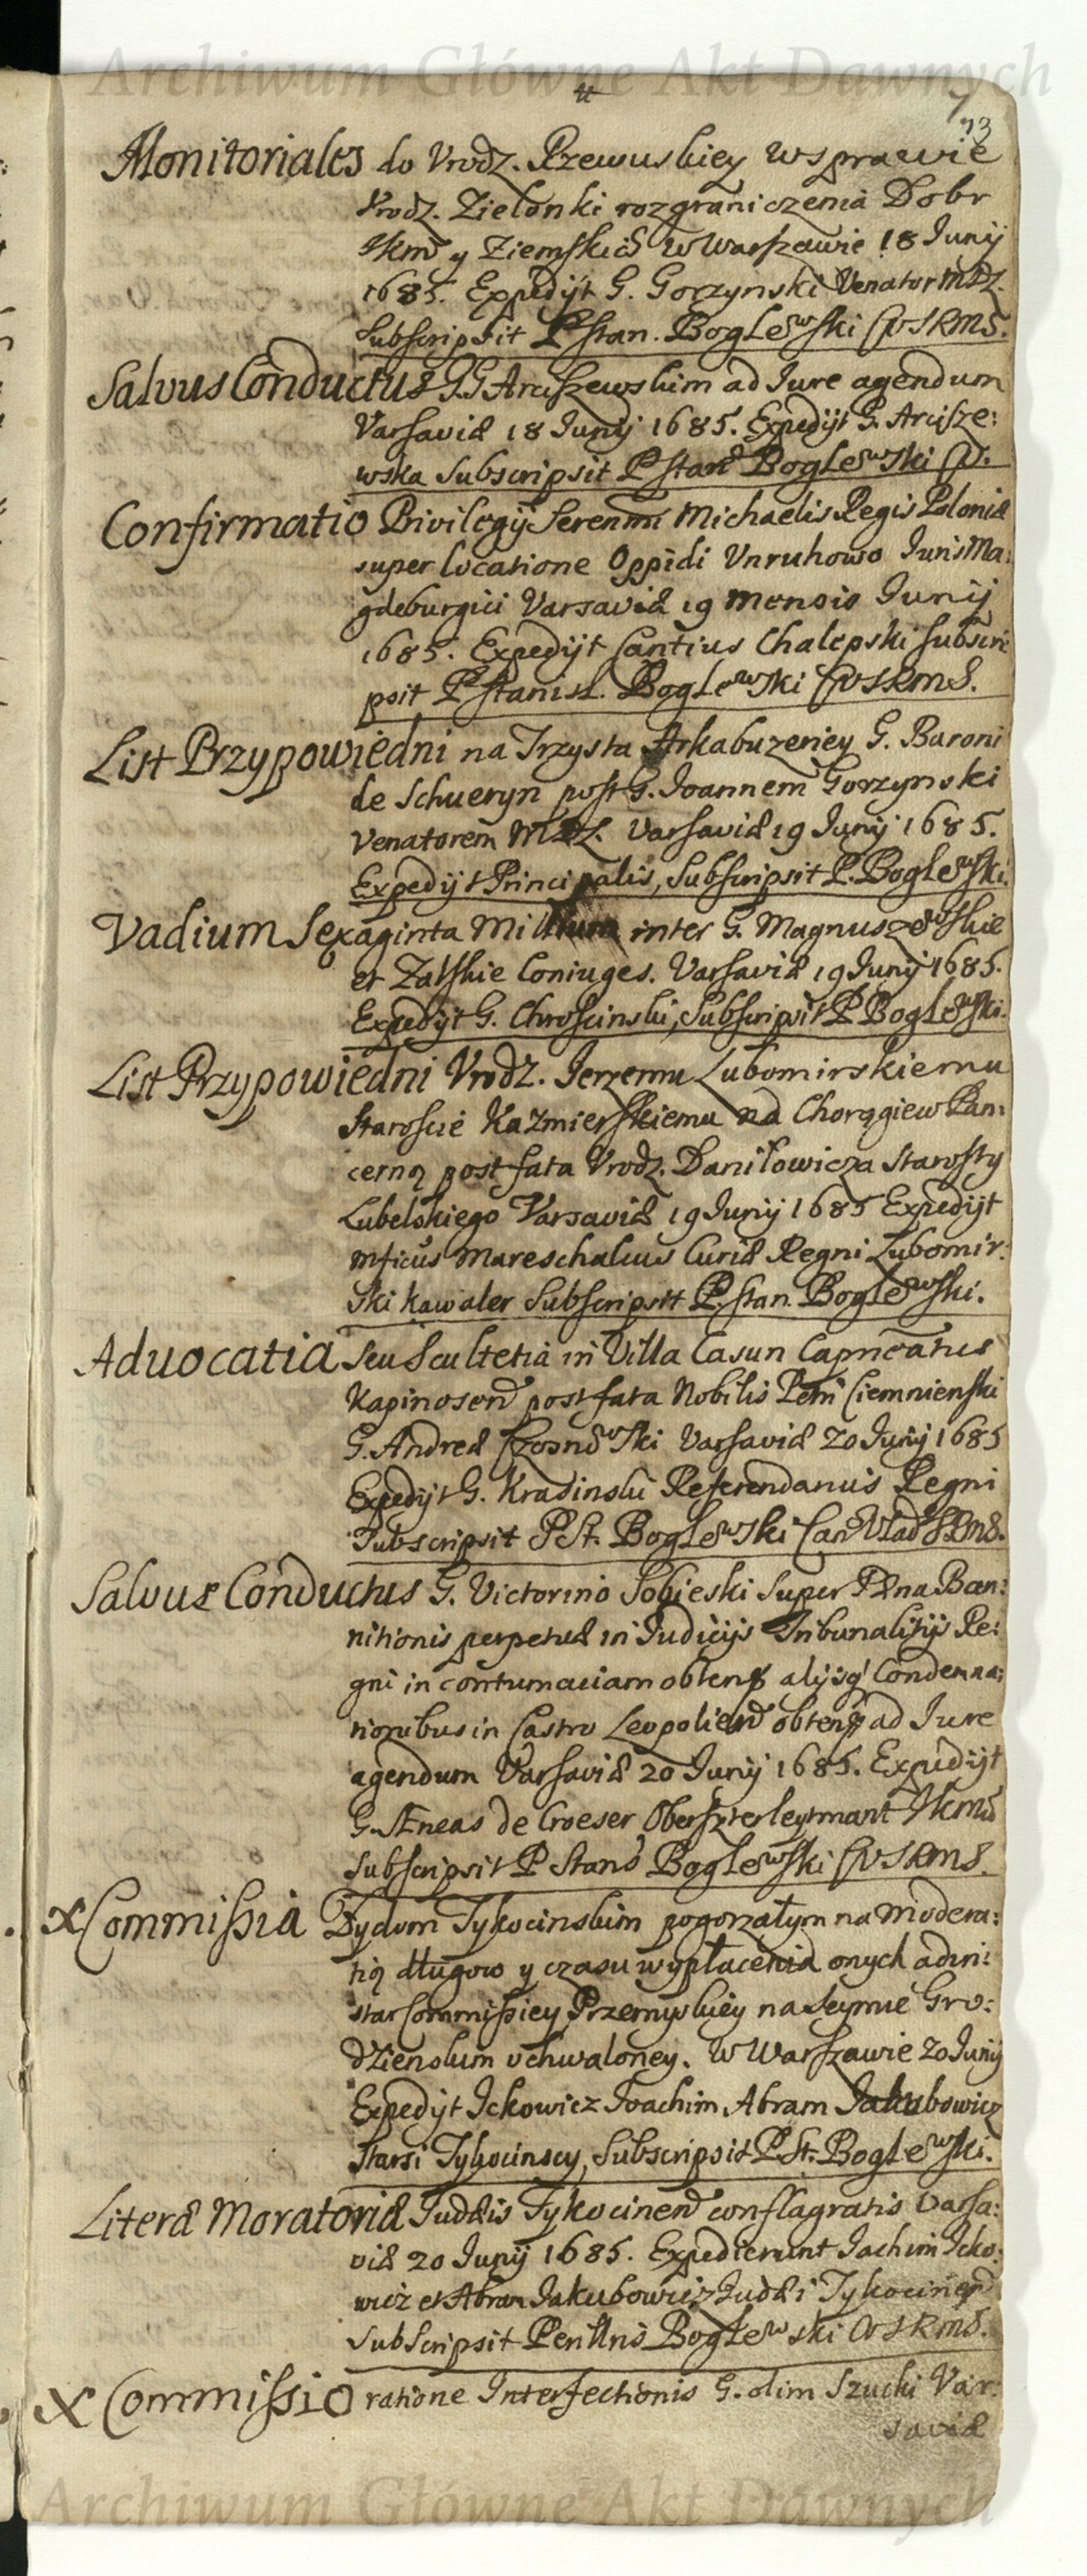 Archiwum Główne Akt Dawnych
7
73
Monitoriales do Vrodz. Rzewuskiey w sprawie
Vrodz. Zielonki rozgraniczenia Dobr
Jkm y Ziemskich w Warszawie 18 Junij
1685. Expedijt G. Gorzynski Venator MDZ.
Subscripsit P Stan. Boglewski CVSRMS.
Salvus Conductus G.G. Arciszewskim ad Jure agendum
Varsaviæ 18 Junij 1685. Expedijt G. Arcisze:
wska Subscripsit P Stan Boglewski
Confirmatio Privilegij Serenmi Michaelis Regis Poloniæ
super locatione Oppidi Vnruhowo Juris Ma:
gdeburgici Varsaviæ 19 mensis Junij
1685. Expedijt Cantius Chalepski subscri
psit P Stanisl. Boglewski CVSRMS.
List Przypowiedni na Trzysta Arkabuzeriey G. Baroni
de Schueryn post G. Joannem Gorzynski
Venatorem MDZ. Varsaviæ 19 Junij 1685.
Expedijt Principalis, Subscripsit P. Boglewski.
Vadium Sexaginta Millium inter G. Magnuszewskie
et Zalskie Coniuges. Varsaviæ 19 Junij 1685.
Expedijt G. Chroscinski, Subscripsit P Boglewski.
List Przypowiedni Vrodz. Jerzemu Lubomirskiemu
Staroscie Kazmierskiemu na Chorągiew Pan:
cerną post fata Vrodz. Daniłowicza Starosty
Lubelskiego Varsaviæ 19 Junij 1685 Expedijt
Mficus Mareschalcus Curiæ Regni Lubomir:
ski kawaler Subscripsit P. Stan. Boglewski.
Aduocatia seu Scultetia in Villa Casun Capiteatus
Kapinosen post fata Nobilis Petri Ciemnienski
G. Andreæ Czosnowski Varsaviæ 20 Junij 1685
Expedijt G. Krasinski Referendarius Regni
Subscripsit P St. Boglewski Can Vlad SRMS.
Salvus Conductus G. Victorino Sobieski super Pæna Ban:
nitionis perpetuæ in Judicijs Tribunalitijs Re:
gni in contumaciam obtent alijsq Condemna:
tionibus in Castro Leopolien obtent ad Jure
agendum Varsaviæ 20 Junij 1685. Expedijt
G. Æneas de Croeser Oberszterleytmant Jkms
Subscripsit P Stans Boglewski CVSRMS.
X Commissia Zydom Tykocinskim pogorzałym na modera:
tią długow y czasu wypłacenia onych ad in:
star Commissiey Przemyskiey na Seymie Gro:
dzienskim vchwaloney. W Warszawie 20 Junij
Expedijt Ickowicz Joachim, Abram Jakubowicz
Starsi Tykocinscy, Subscripsit P St. Boglewski.
Literæ Moratoriæ Judæis Tykocinen conflagratis Varsa:
viæ 20 Junij 1685. Expedierunt Jachim Icko:
wicz et Abram Jakubowicz Judæi Tykocinen
Subscripsit Boglewski CVSRMS.
X Commissio ratione Interfectionis G. olim Szucki Var:
saviæ
Archiwum Główne Akt Dawnych